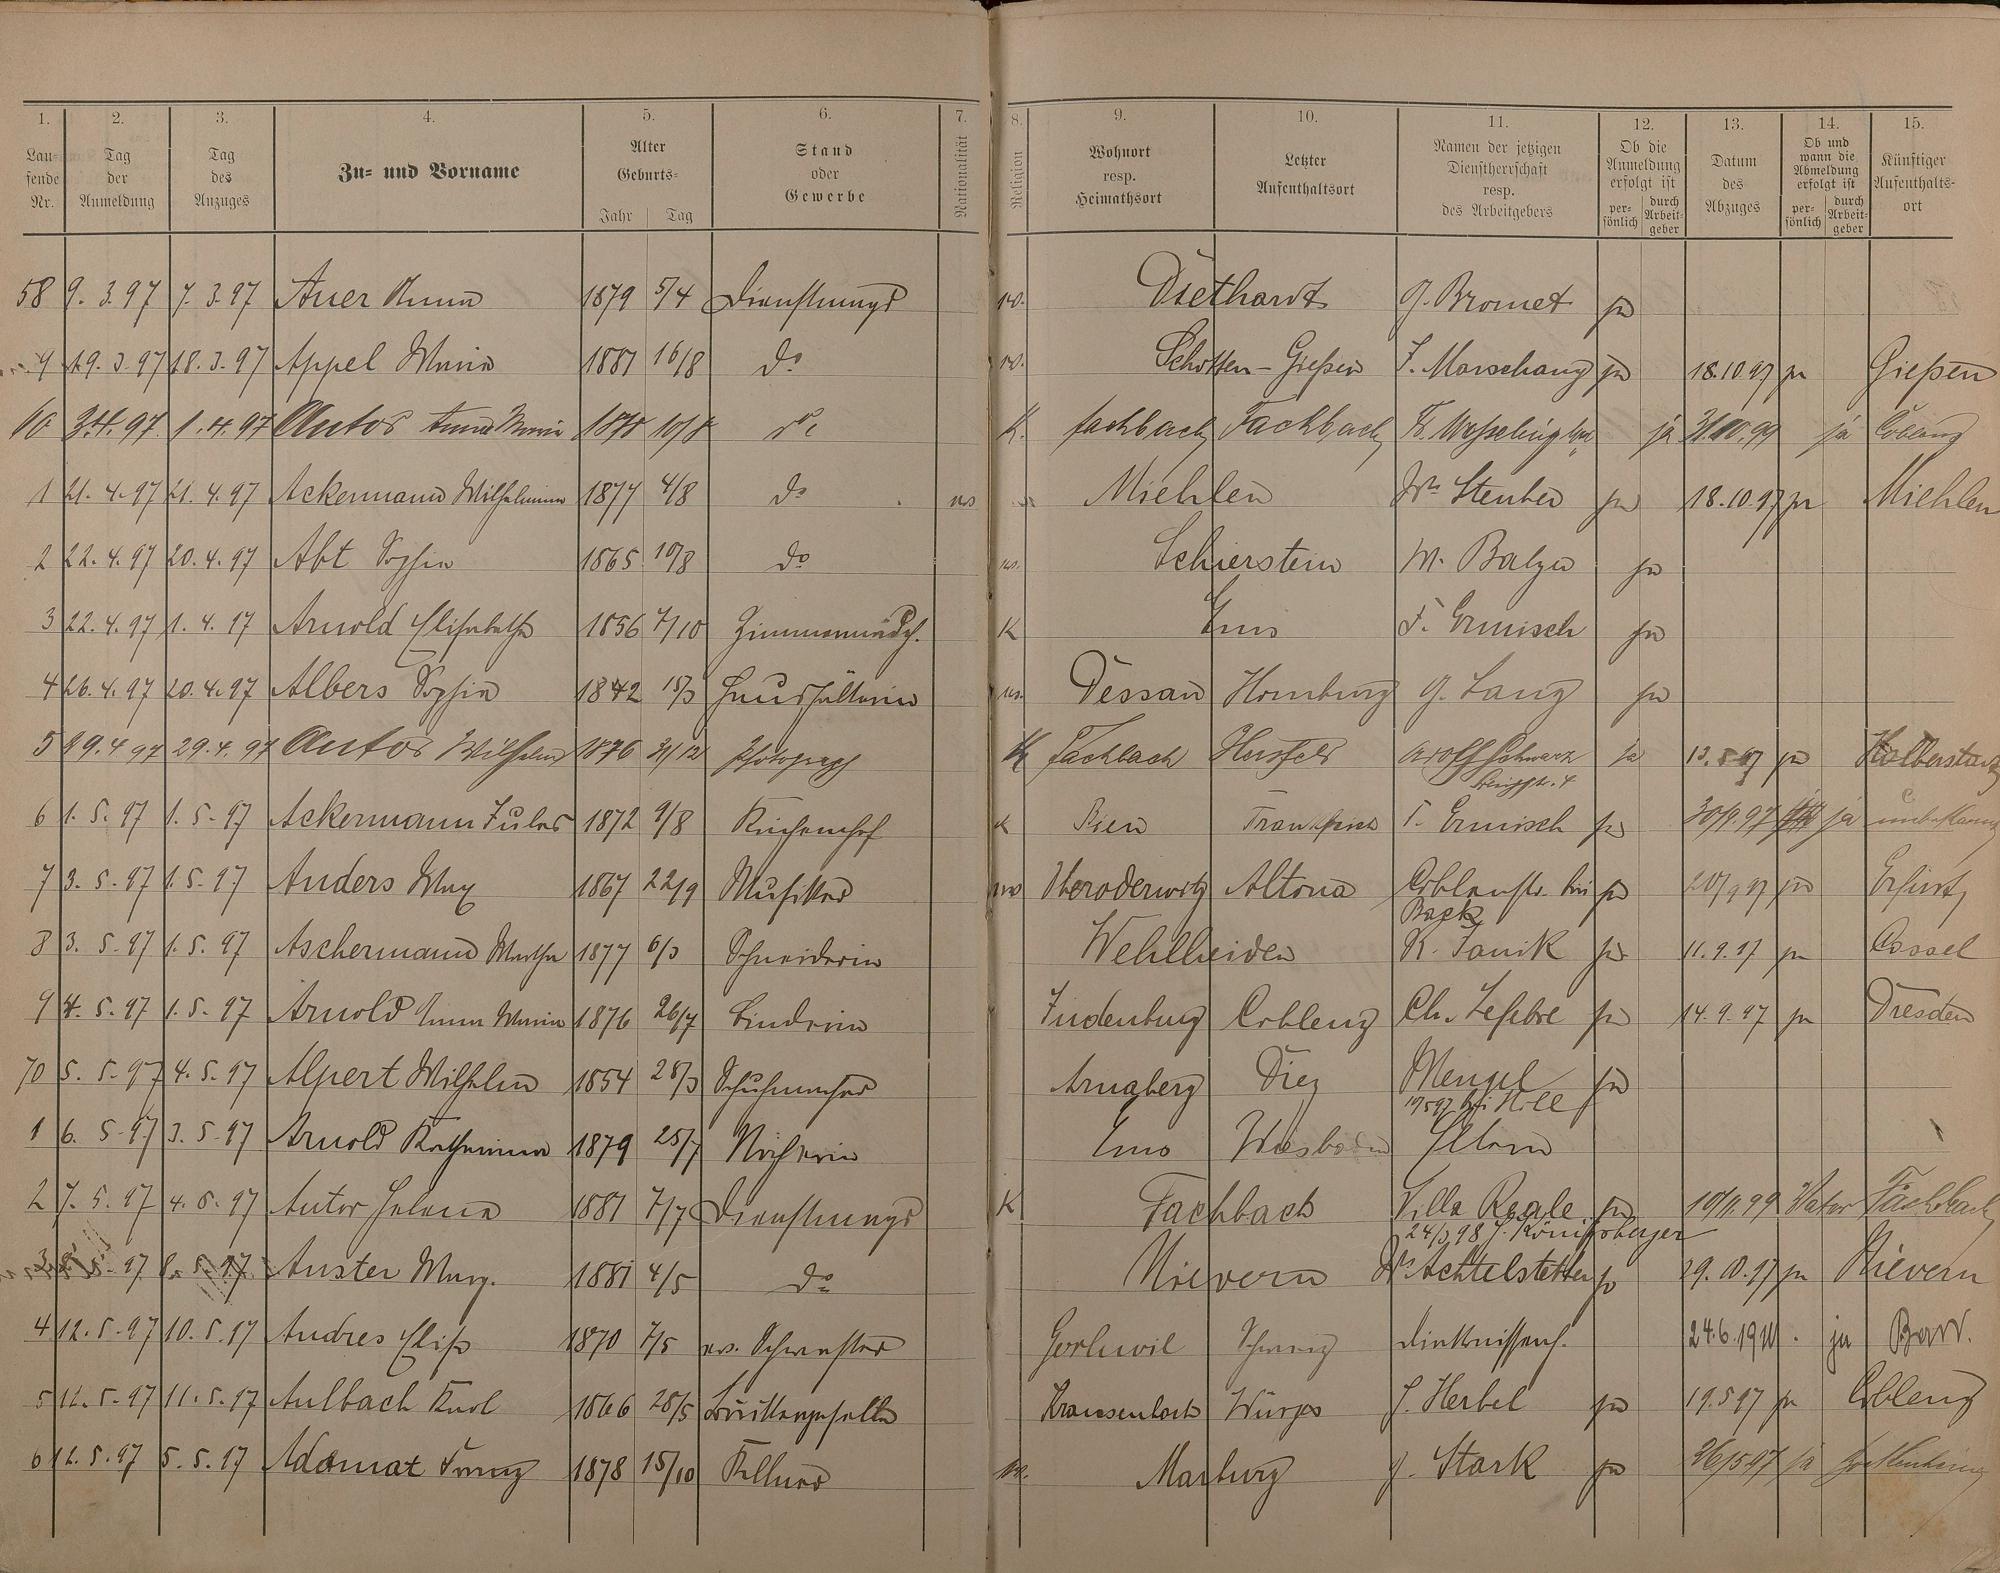 1. 2. 3. 4. 5. 6. 7. 8. 9. 10. 11. 12. 13. 14. 15.
Laufende Nr. Tag der Anmeldung Tag des Anzuges Zu- und Vorname Alter Geburts- Jahr Tag Stand oder Gewerbe Nationalität Religion Wohnort resp. Heimathsort Letzter Aufenthaltsort Namen der jetzigen Dienstherrschaft resp. des Arbeitgebers Ob die Anmeldung erfolgt ist persönlich durch Arbeitgeber Datum des Abzuges Ob und wann die Abmeldung erfolgt ist persönlich durch Arbeitgeber Künftiger Aufenthaltsort
58 9. 3. 97 7. 3. 97 Auer Anna 1879 5/4 Dienstmagd Diethardt J. Bromet ja
9 19. 3. 97 18. 3. 97 Appel Maria 1881 16/8 do Schotten - Gießen F. Marschang ja 18. 10. 97 ja Gießen
60 1. 4. 97 Autor Anna Maria 10/8 do K. Fachbach Fachbach ja ja Coblenz
1 21. 4. 97 21. 4. 97 Ackermann Wilhelmina 1877 4/8 do Miehlen We Steuber ja 18. 10. 97 ja Miehlen
2 22. 4. 97 20. 4. 97 Abt Sophia 1865 10/8 do Schierstein W. Balzer ja
3 22. 4. 97 1. 4. 97 Arnold Elisabetha 1856 7/10 Zimmermädch. K Ems F. Ermisch ja
4 26. 4. 97 20. 4. 97 Albers Sophia 1842 15/3 Haushälterin Dessau Homburg J. Lang ja
5 29. 4 97 29. 4. 97 Autor Wilhelm 1876 31/12 Photograph K Fachbach Hersfeld Adolf Schwarz ja 13. 5 97 ja Halberstadt
6 1. 5. 97 1. 5. 97 Ackermann Jules 1872 9/8 Küchenchef K Frankreich F. Ermisch ja ja unbekannt
7 3. 5. 97 1. 5. 97 Anders Max 1867 22/9 Musiker Oberoderwitz Altona Coblenzstr. bei Back ja 20/9 97 ja Erfurt
8 3. 5. 97 1. 5. 97 Aschermann Martha 1877 6/3 Schneiderin Wehlheiden R. Janik ja 11. 9. 97 ja Cassel
9 4. 5. 97 1. 5. 97 Arnold Anna Maria 1876 26/7 Binderin Judenburg Coblenz Ch. Lefebre ja 14. 9. 97 ja Dresden
70 5. 5. 97 4. 5. 97 Alpert Wilhelm 1854 28/3 Schuhmacher Arnsberg Diez Mengel ja
1 6. 5. 97 3. 5. 97 Arnold Katharina 1879 25/7 Näherin Ems Wiesbaden Eltern
2 7. 5. 97 4. 5. 97 Autor Helena 1881 7/7 Dienstmagd K Fachbach Villa Reale ja 10/11 99 Vater Fachbach
24/3 98 J. Königsberger
3 8. 5. 97 Auster Marg. 1881 4/5 do Nievern We Achtelstetter ja 29. 10. 97 ja Nievern
4 12. 5. 97 10. 5. 97 Andres Elise 1870 7/5 ev. Schwester Schweiz Diakonissenh. 24. 6. ja
5 12. 5. 97 11. 5. 97 Aulbach Karl 1866 28/5 Würges J. Herbel ja 19. 5 97 ja Coblenz
6 12. 5. 97 5. 5. 97 Adamat Franz 1878 15/10 Kellner Marburg J. Stark ja 26/5 97 ja